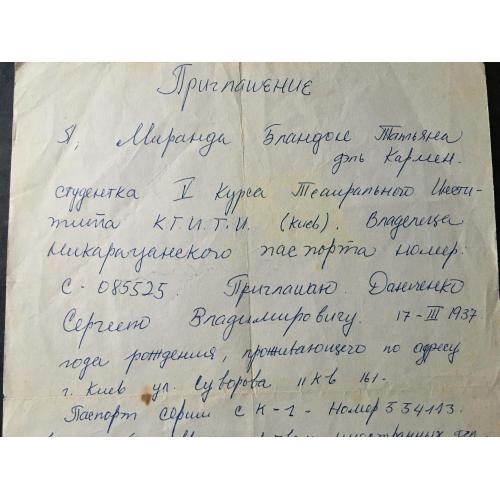 Приглашение
Я, Миранда Бландон Татьяна
дэль Кармен.
студентка V курса Театрального Инсти-
тута К Г И. Т. И. (Киев). Владелеца
Никарагуанского паспорта номер:
С - 085525. Приглашаю. Данченко
Сергею Владимировичу. 17 - III 1937
года рождения, проживающего по адресу
г. Киев ул. Суворова 11 кв 161.
Паспорт серии с К - 2 - Номер 554113.
иностранных